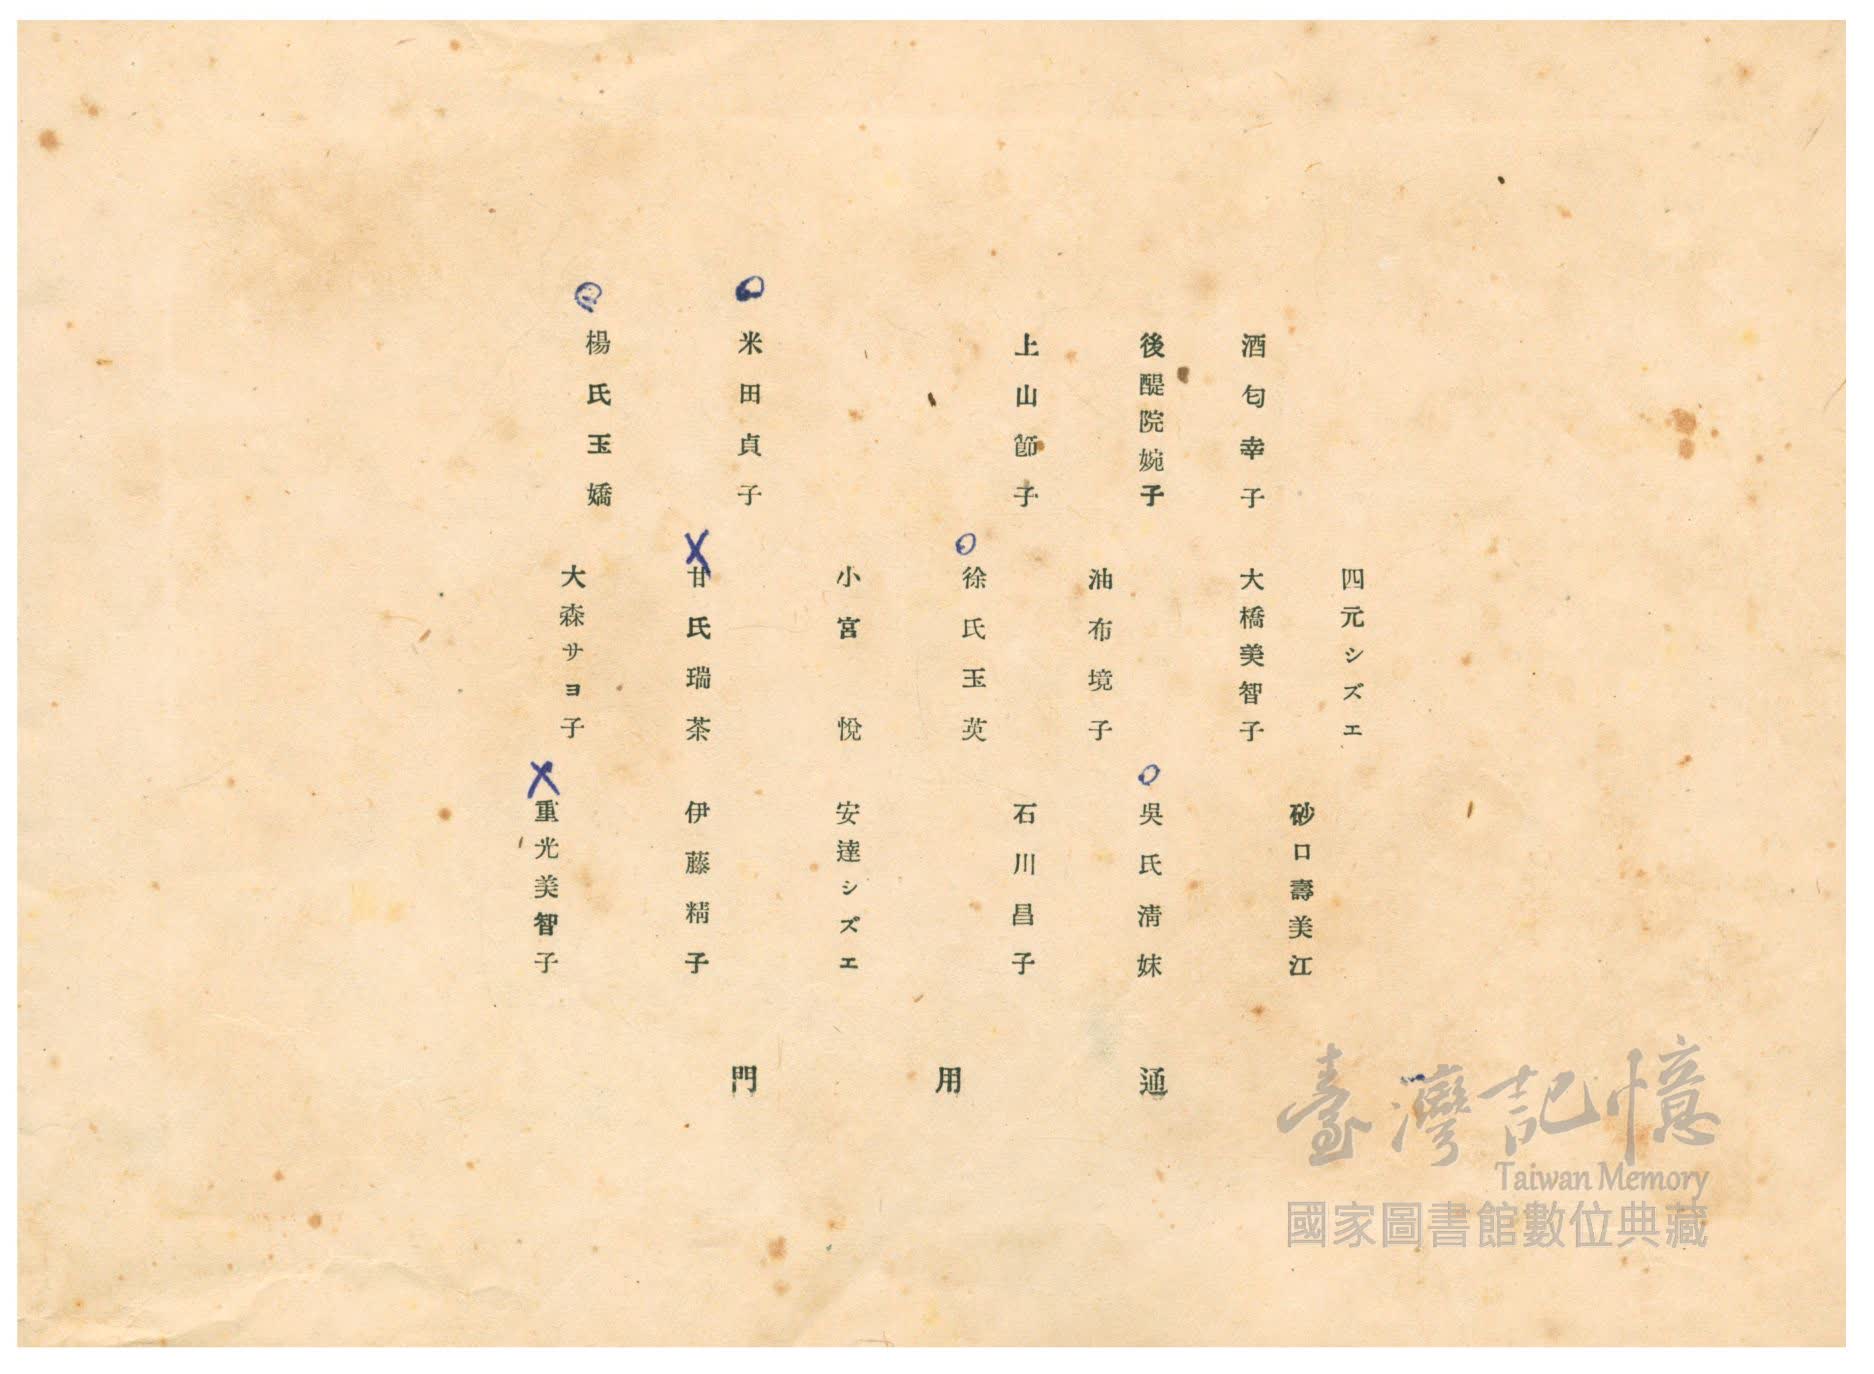 酒匂幸子
後醍院婉子
上山節子
米田貞子
楊氏玉嬌
四元シズエ
大橋美智子
油布境子
徐氏玉英
小宮悅
甘氏瑞茶
大森サヨ子
砂口壽美江
吳氏清妹
石川昌子
安達シズエ
伊藤精子
重光美智子
通用門
臺灣記憶
Taiwan Memory
國家圖書館數位典藏